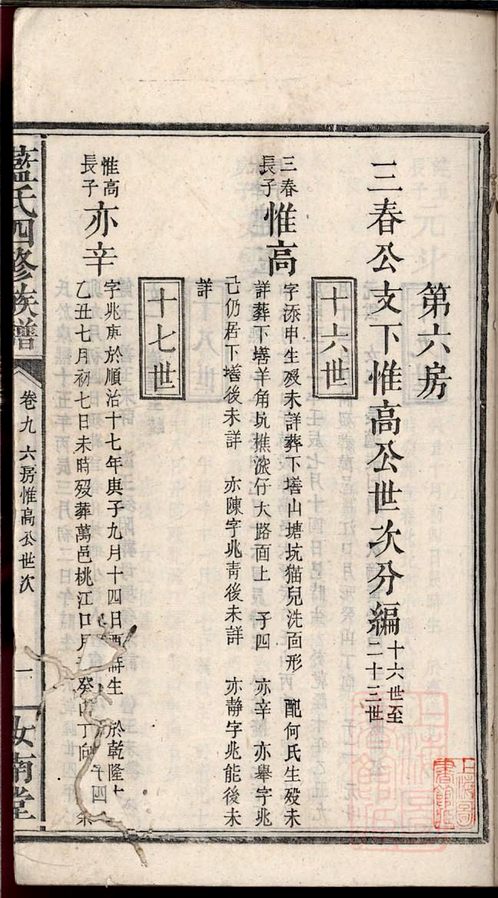 第六房
三春公支下惟高公世次分編 十六世至
二十三世
十六世
三春
長子 惟高 字添申生歿未詳葬下墸山塘坑猫兒洗面形 配何氏生歿未
詳葬下墸羊角坑樵漈仔大路面上 子四 亦辛 亦舉字兆
己仍居下墸後未詳 亦陳字兆靑後未詳 亦靜字兆能後未
詳
十七世
惟高
長子 亦辛 字兆庚於順治十七年庚子九月十四日酉時生 於乾隆十
乙丑七月初七日未時歿葬萬邑桃江口 癸山丁向 子四
藍氏四修族譜
卷九 六房惟高公世次
一
汝南堂